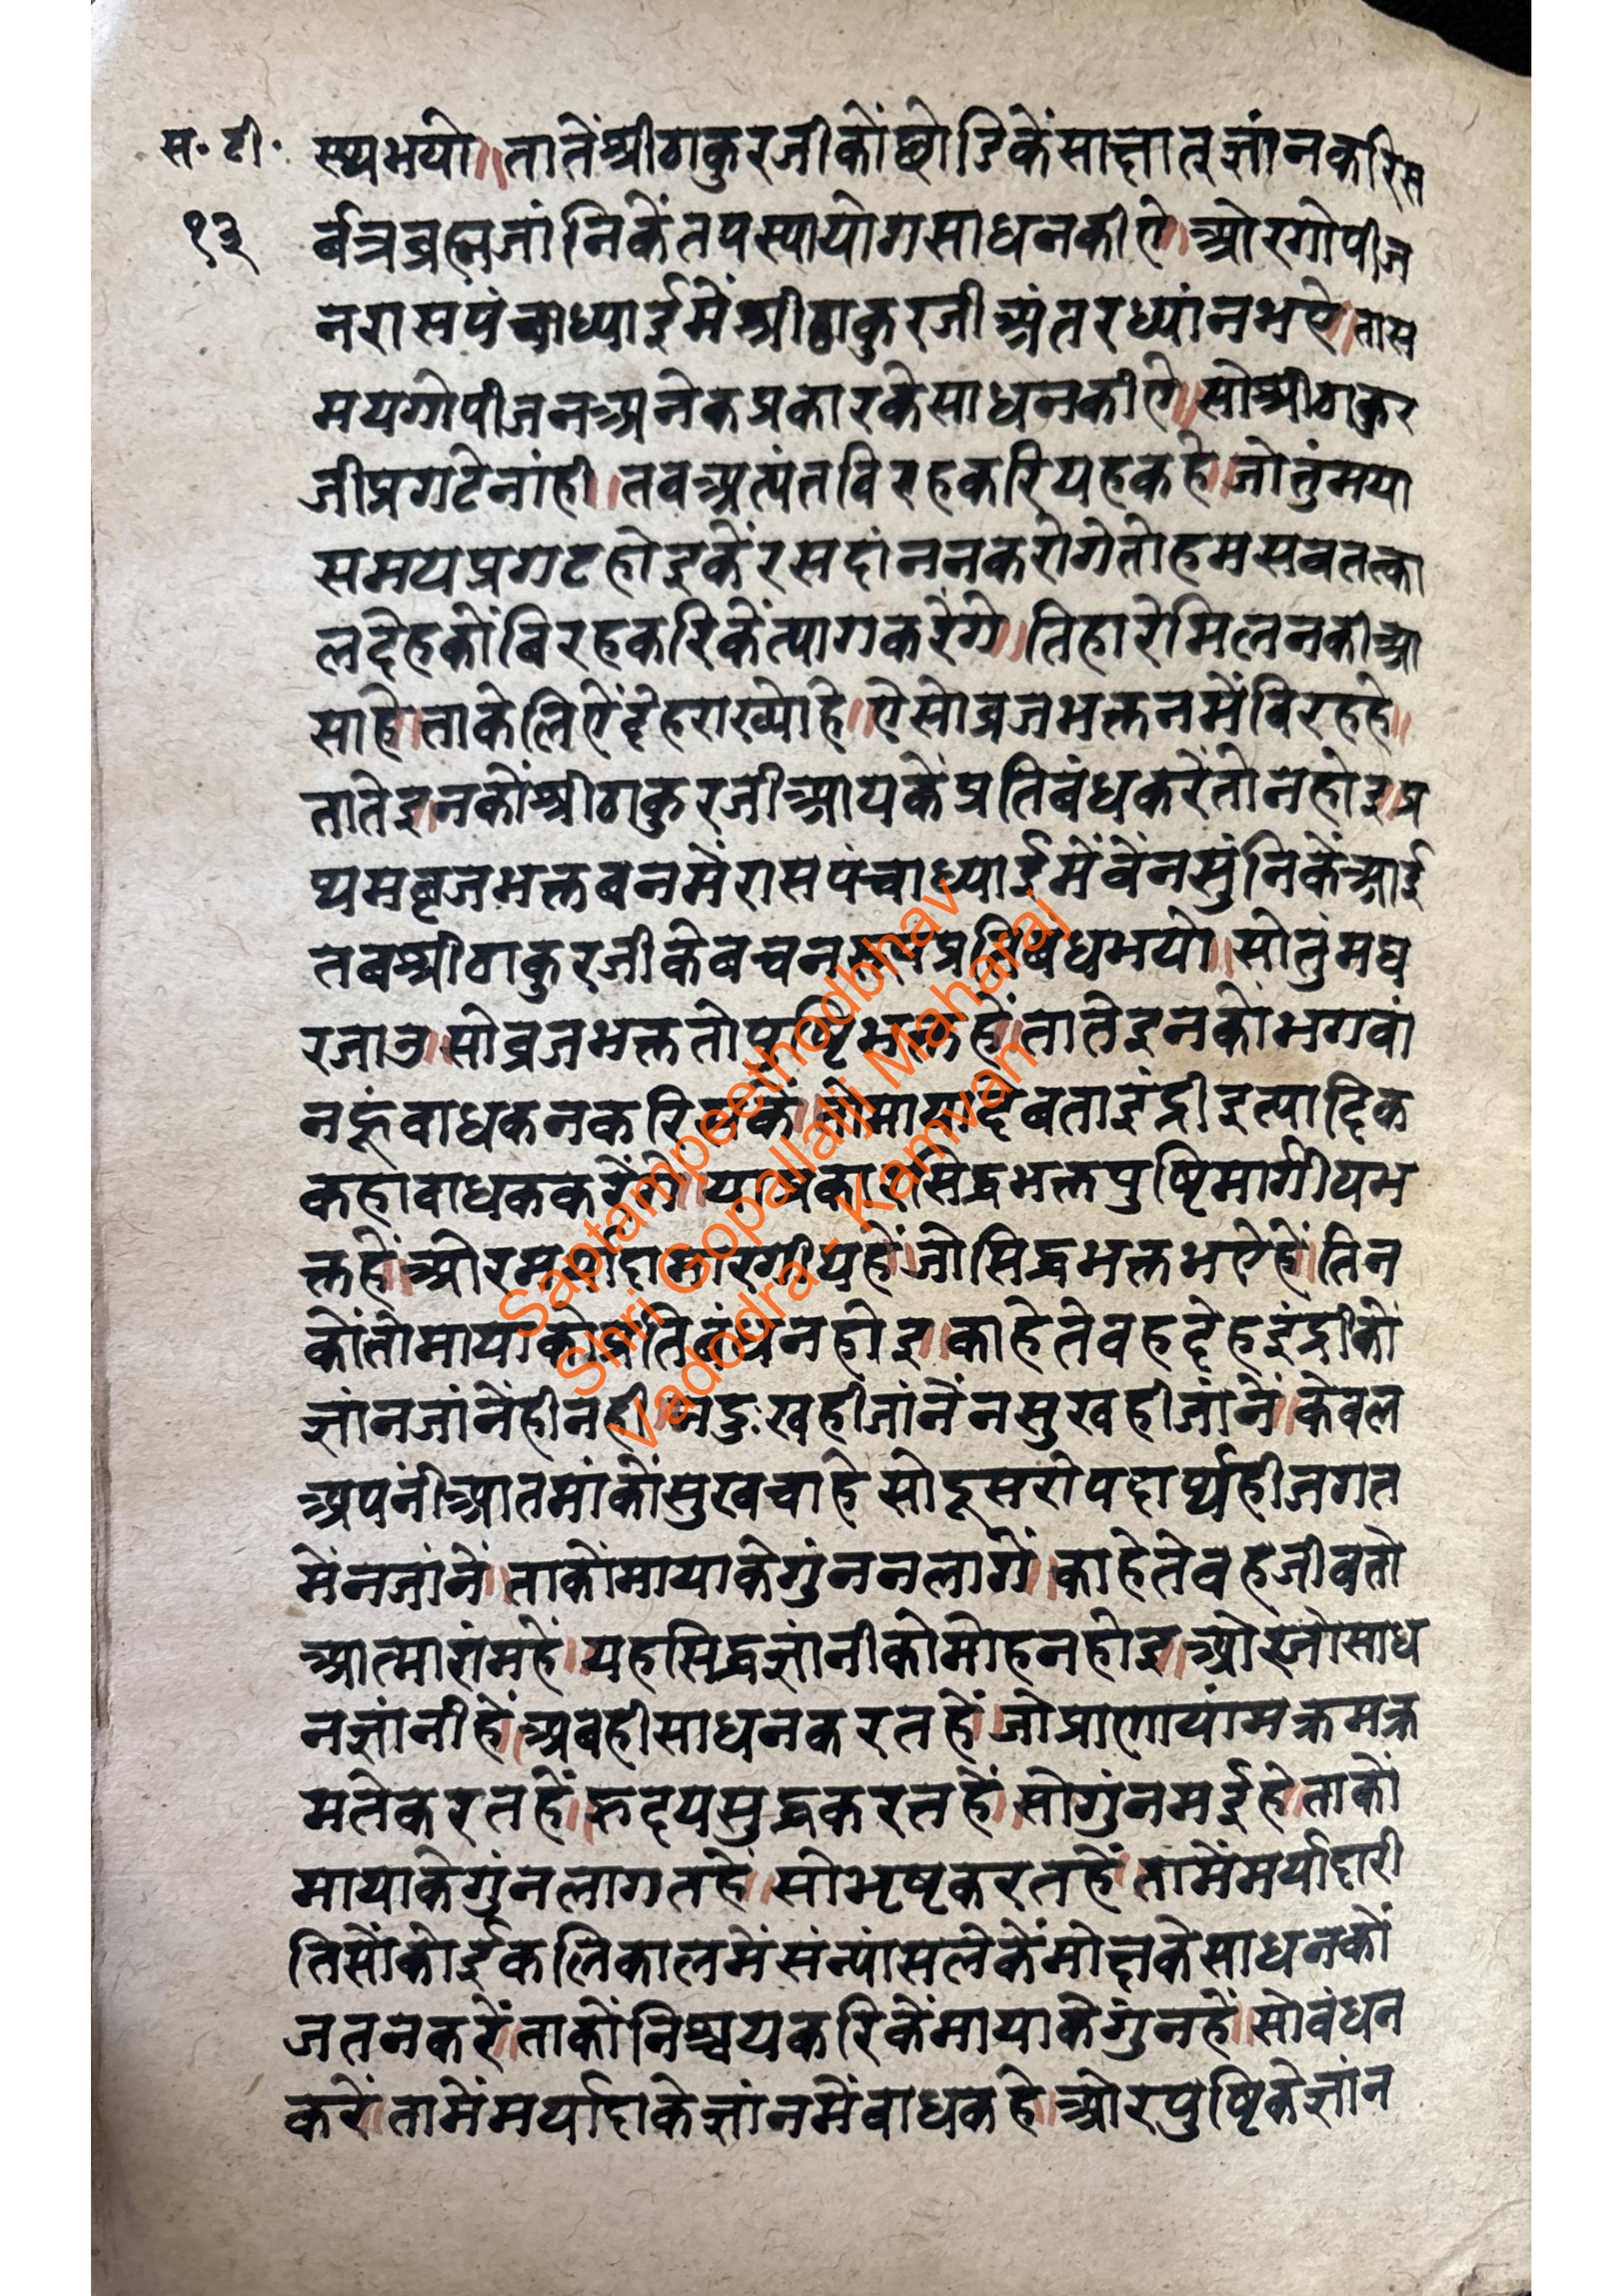 स॰ टी॰
१३
स्यभयो॥तातेंश्रीठाकुरजीकोंछोडिकेंसाक्षातज्ञांनकरिस
र्वत्रब्रह्मजांनिकेंतपस्यायोगसाधनकीऐ॥ओरगोपीज
नरासपंचाध्याईमेंश्रीठाकुरजीअंतरध्यांनभऐ॥तास
मयगोपीजनअनेकप्रकारकेसाधनकीऐ॥सोश्रीठाकुर
जीप्रगटेनांही॥तवअत्यंतविरहकरियहकहे॥जोतुंमया
समयप्रगटहोइकेंरसदांननकरोगेतोहमसवतत्का
लदेहकोंबिरहकरिकेंत्यागकरेंगे॥तिहारेमिलनकीआ
साहे॥ताकेलिऐंदेहराख्योहे॥ऐसोब्रजभक्तनमेंबिरहहे॥
तातेइनकोंश्रीठाकुरजीआयकेंप्रतिबंधकरेंतोनहोइ॥प्र
थमबृजभक्तबनमेंरासपंचाध्याईमेंवेंनसुंनिकेंआई
तबश्रीठाकुरजीकेबचनरूपप्रतिबंधभयो॥सोतुंमघ
रजाउ॥सोब्रजभक्ततोपुष्टिभक्तहें॥तातेइनकोंभगवां
नहूंवाधकनकरिसकें॥तोमायादेवताइंद्रीइत्यादिक
कहावाधककरेंगे॥याप्रकारसिद्धभक्तपुष्टिमार्गीयभ
क्तहें॥ओरमर्यादामारगीयहें॥जोसिद्धभक्तभऐहें॥तिन
कोंतोमायाकोप्रतिबंधनहोइ॥काहेतेवहदेहइंद्रीकों
ज्ञांनजांनेंहीनही॥नदुःखहीजांनेंनसुखहीजांनें॥केवल
अपनीआतमांकोंसुखचाहे॥सोदूसरोपदार्थहीजगत
मेंनजांनें॥ताकोंमायाकेगुंननलागें॥काहेतेवहजीवतो
आत्मारांमहे॥यहसिद्धज्ञांनीकोमोहनहोइ॥ओरजोसाध
नज्ञांनीहें॥अबहीसाधनकरतहें॥जोप्राणायांमक्रमक्र
मतेकरतहें॥रुदयसुद्धकरतहें॥सोगुंनमईहे॥ताकों
मायाकेगुंनलागतहें॥सोभृष्टकरतहें॥तामेंमर्यादारी
तिसोंकोईकलिकालमेंसंन्यांसलेकेंमोक्षकेसाधनकों
जतनकरें॥ताकोंनिश्चयकरिकेंमायाकेगुंनहें॥सोबंधन
करें॥तामेंमर्यादाकेज्ञांनमेंबाधकहे॥ओरपुष्टिकेज्ञांन
Saptampeethodbhav
Shri Gopallalji Maharaj
Vadodra - Kamvan